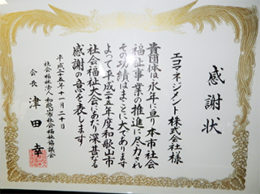 感謝状
エコマネジメント株式会社様
貴団体は永年に亘り本市社会
福祉事業の推進に尽力され
その功績はまことに大であります
よって平成二十五年度和歌山市
社会福祉大会にあたり深甚なる
感謝の意を表します
平成二十五年十一月二十日
社会福祉法人和歌山市社会福祉協議会
会長 津田幸